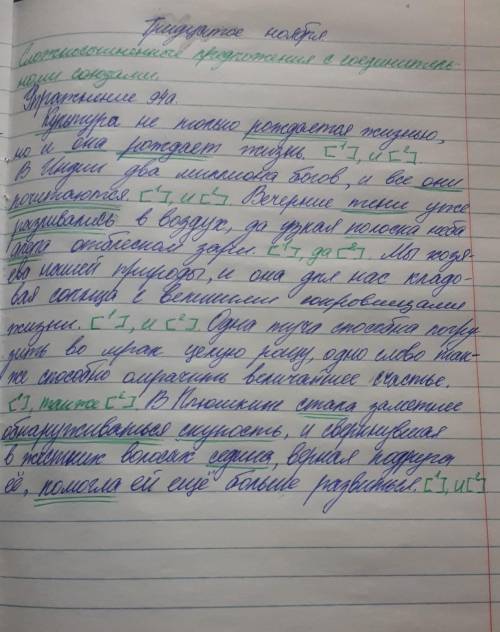 Тридцатое ноября.
Сложносочинённые предложения с соединитель-
ными союзами.
Упражнение 94а.
Культура не только рождается жизнью,
но и она рождает жизнь. [¹], и [²]
В Индии два миллиона богов, и все они
почитаются. [¹], и [²]. Вечерние тени уже
разливались в воздухе, да узкая полоска неба
алела отблеском зари. [¹], да [²]. Мы хозя-
ева нашей природы, и она для нас кладо-
вая солнца с великими сокровищами
жизни. [¹], и [²]. Одна туча способна погру-
зить во мрак целую рощу, одно слово так-
же способно омрачить величайшее счастье.
[¹], также [²]. В Плюшкине стала заметнее
обнаруживаться скупость, и сверкнувшая
в жёстких волосах седина, верная подруга
её, помогла ей ещё больше развиться. [¹], и [²]